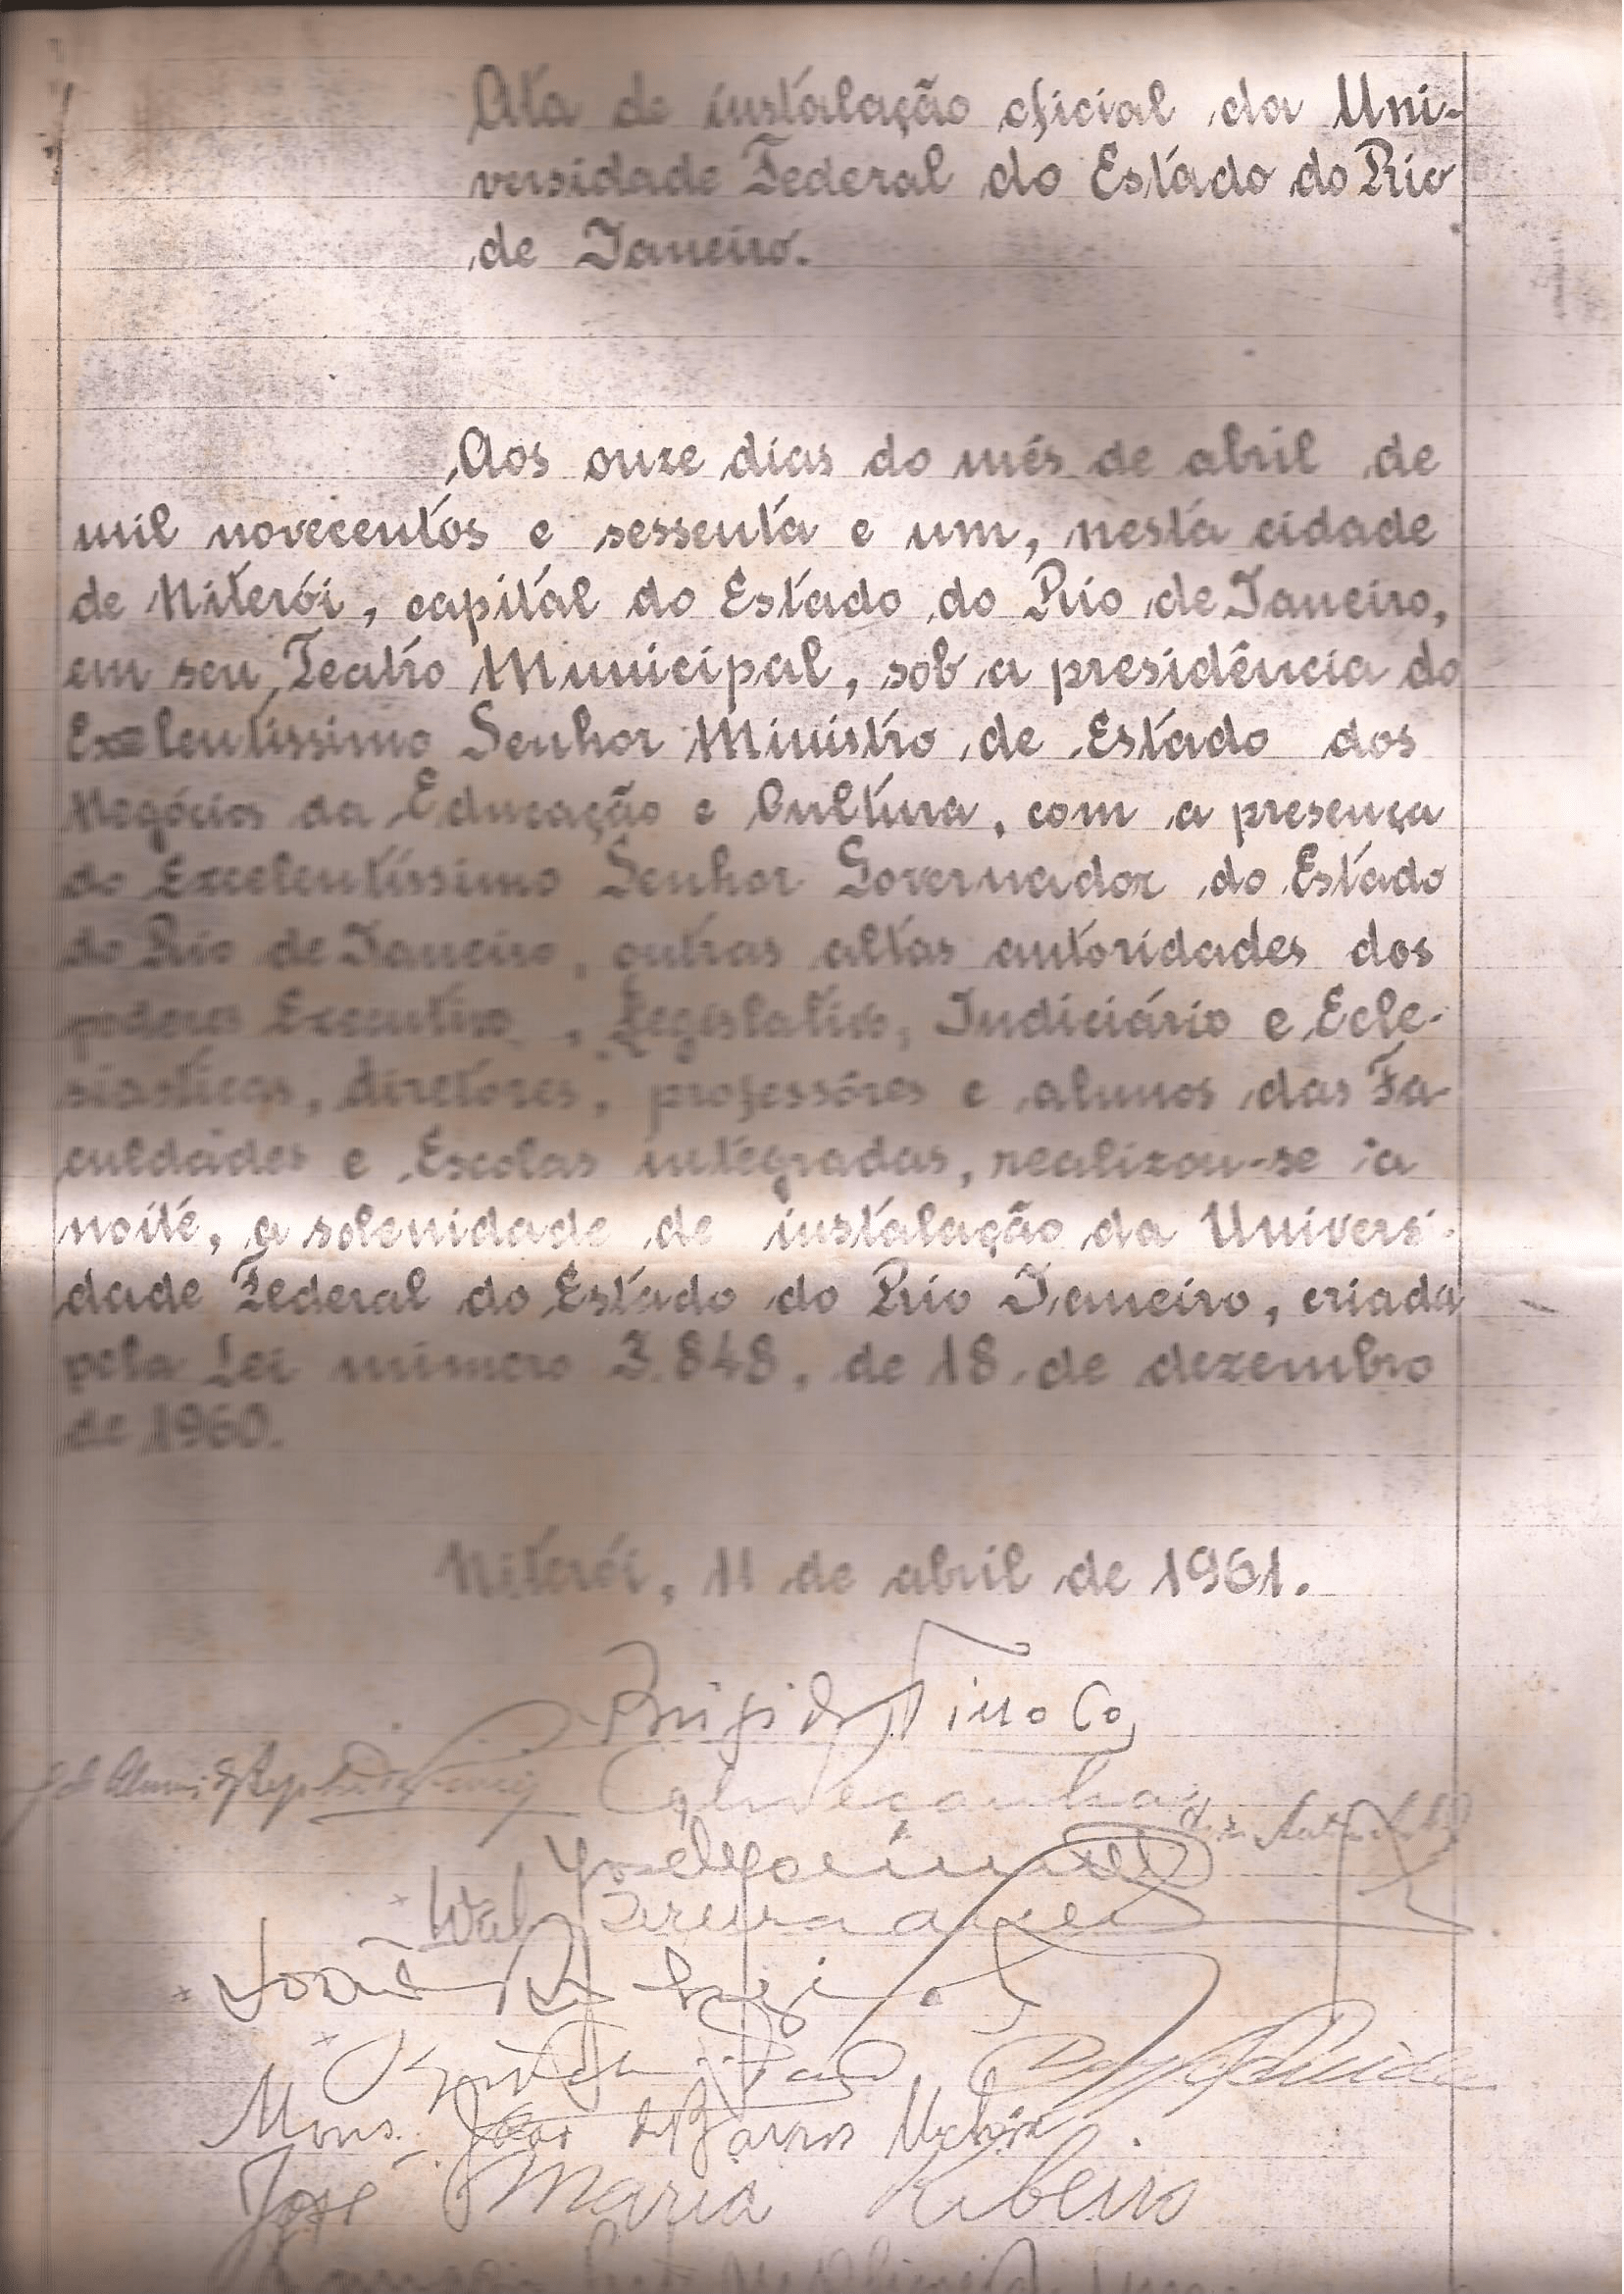 Ata de instalação oficial da Uni-
versidade Federal do Estado do Rio
de Janeiro.
Aos onze dias do mês de abril de
mil novecentos e sessenta e um, nesta cidade
de Niterói, capital do Estado do Rio de Janeiro,
em seu Teatro Municipal, sob a presidência do
Exelentíssimo Senhor Ministro de Estado dos
Negócios da Educação e Cultura, com a presença
do Excelentíssimo Senhor Governador do Estado
do Rio de Janeiro, outras altas autoridades dos
poderes Executivo, Legislativo, Judiciário e Ecle-
siásticos, diretores, professôres e alunos das Fa-
culdades e Escolas integradas, realizou-se à
noite, a solenidade de instalação da Universi-
dade Federal do Estado do Rio Janeiro, criada
pela Lei número 3.848, de 18 de dezembro
de 1960.
Niterói, 11 de abril de 1961.
Brigido Tinoco
João
Mons. João de Barros Uchôa
José Maria Ribeiro